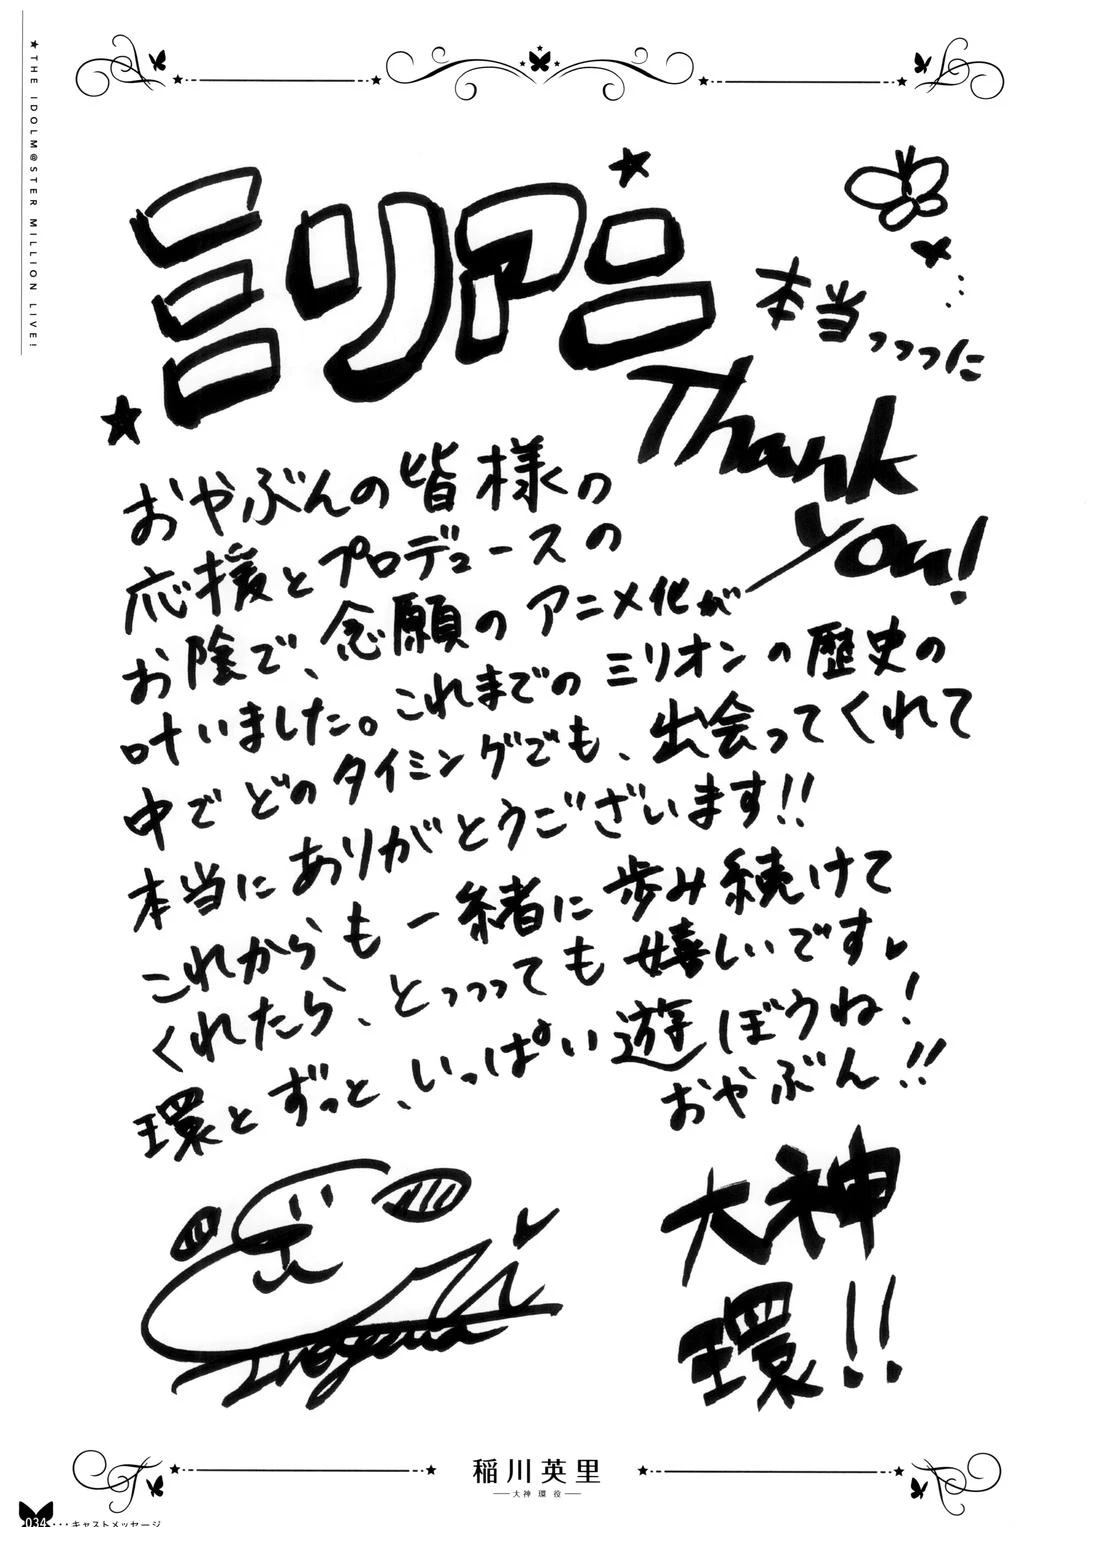 ★THE IDOLM@STER MILLION LIVE!
ミリアニ
本当っっっに
Thank
You!
おやぶんの皆様の
応援とプロデュースの
お陰で、念願のアニメ化が
叶いました。これまでのミリオンの歴史の
中でどのタイミングでも、出会ってくれて
本当にありがとうございます!!
これからも一緒に歩み続けて
くれたら、とっっっても嬉しいです♥
環とずっと、いっぱい遊ぼうね!
おやぶん!!
大神
環!!
Inagawa
稲川英里
大神 環 役
034・・・キャストメッセージ